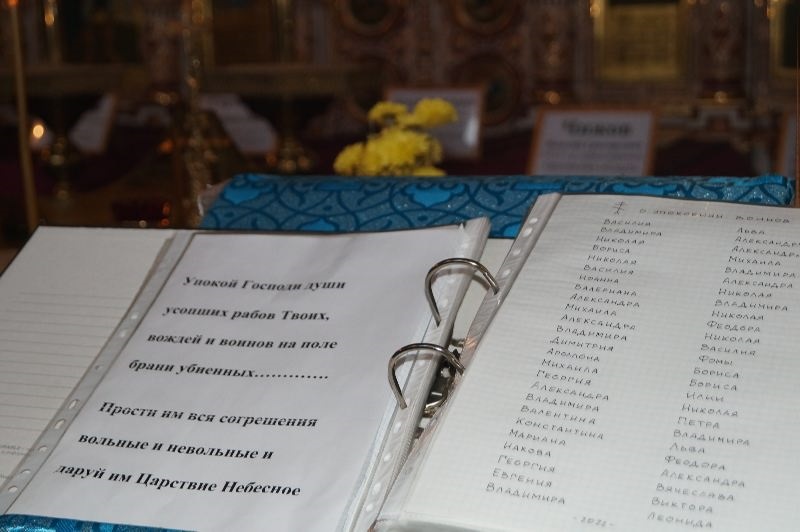 Упокой Господи души
усопших рабов Твоих,
вождей и воинов на поле
брани убиенных.............
Прости им вся согрешения
вольные и невольные и
даруй им Царствие Небесное
О упокоении воинов
Василия
Владимира
Николая
Бориса
Николая
Василия
Иоанна
Валериана
Александра
Михаила
Александра
Владимира
Димитрия
Михаила
Георгия
Александра
Владимира
Валентина
Константина
Мариана
Иакова
Георгия
Евгения
Владимира
Льва
Александра
Александра
Михаила
Владимира
Александра
Николая
Владимира
Николая
Феодора
Николая
Василия
Фомы
Бориса
Бориса
Илии
Николая
Петра
Владимира
Льва
Феодора
Александра
Вячеслава
Виктора
Леонида
-2022-